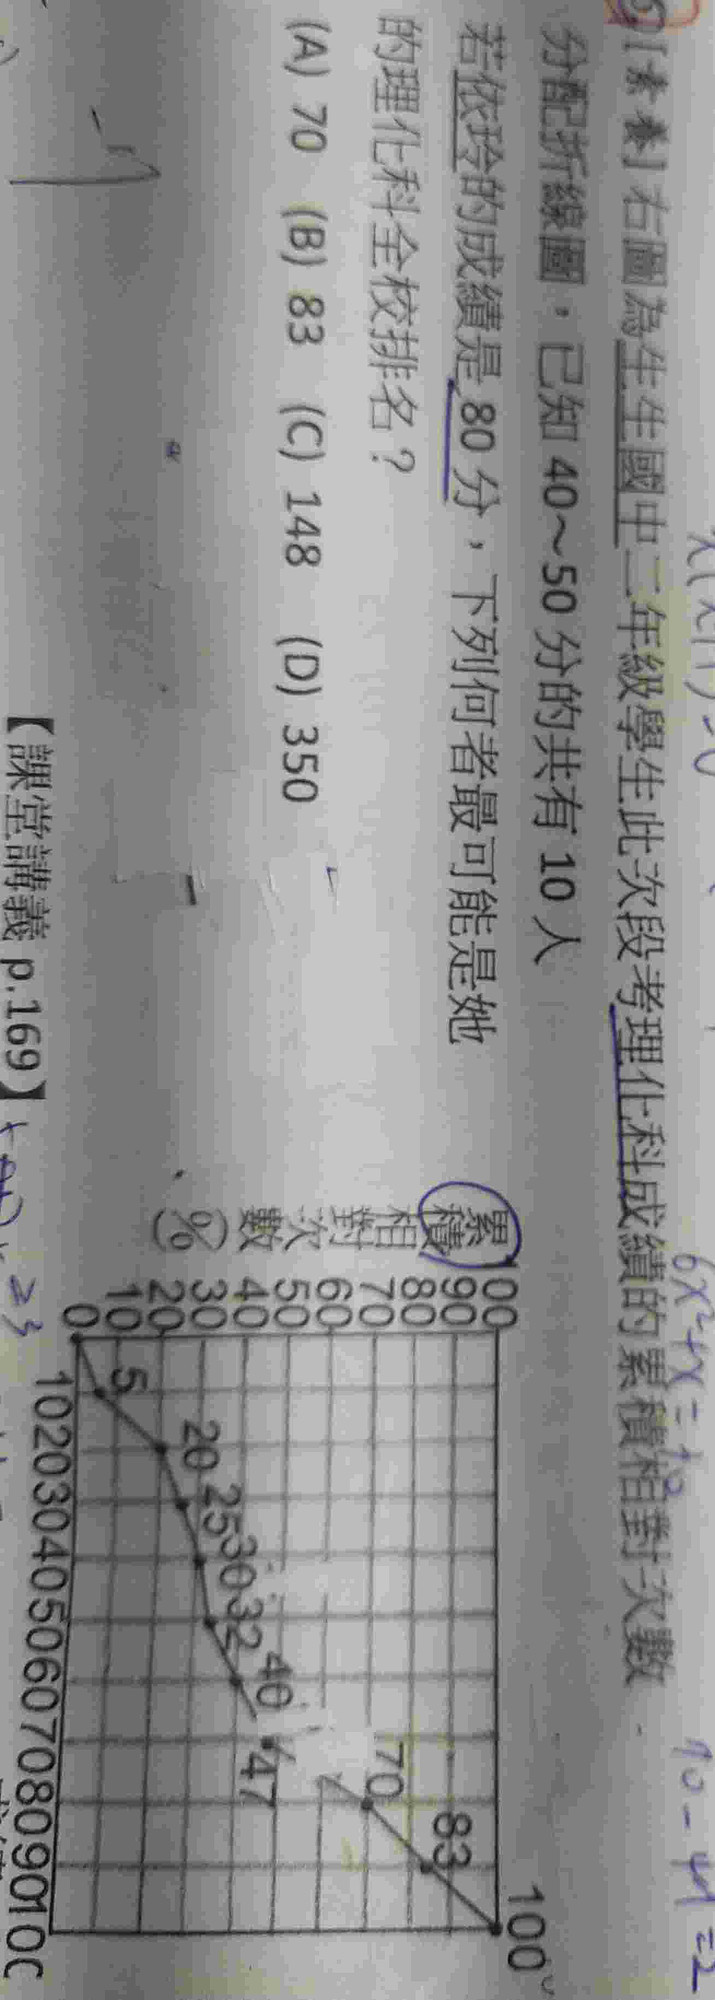 【素養】右圖為生生國中二年級學生此次段考理化科成績的累積相對次數
分配折線圖，已知 40～50 分的共有 10 人
若依玲的成績是 80 分，下列何者最可能是她
的理化科全校排名？
(A) 70 (B) 83 (C) 148 (D) 350
【課堂講義 p.169】
累積相對次數(%)
100
90
80
70
60
50
40
30
20
10
0
5 20 25 30 32 40 47 70 83 100
10 20 30 40 50 60 70 80 90 100
6x²+x=